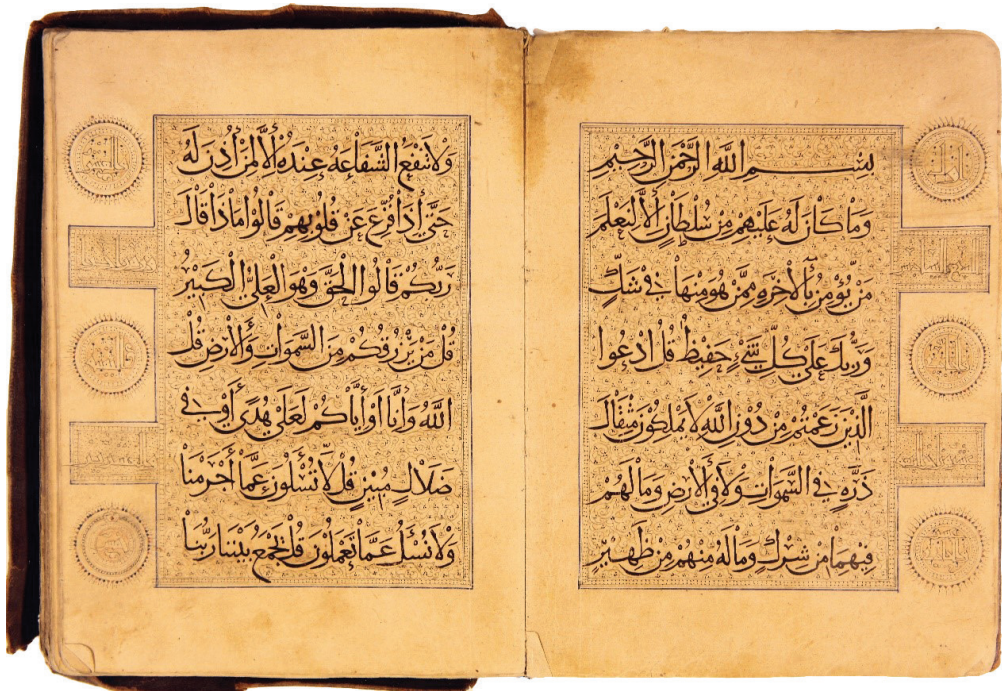 بسم الله الرحمن الرحيم
وَمَا كَانَ لَهُ عَلَيْهِمْ مِنْ سُلْطَانٍ أِلَّا لِنَعْلَمَ
مَنْ يُؤْمِنُ بِالْأَخِرَهِ مِمَّنْ هُوَ مِنْهَا فِي شَكٍّ
وَرَبُّكَ عَلَى كُلِّ شَيْءٍ حَفِيظٌ قُلِ ادْعُوا
الَّذِينَ زَعَمْتُمْ مِنْ دُونِ اللَّهِ لَا يَمْلِكُونَ مِثْقَالَ
ذَرَّهٍ فِي السَّمَوَاتِ وَلَا فِي الْأَرْضِ وَمَا لَهُمْ
فِيهِمَا مِنْ شِرْكٍ وَمَا لَهُ مِنْهُمْ مِنْ ظَهِيرٍ
وَلَا تَنْفَعُ الشَّفَاعَهُ عِنْدَهُ أِلَّا لِمَنْ أَذِنَ لَهُ
حَتَّى أِذَا فُزِّعَ عَنْ قُلُوبِهِمْ قَالُوا مَاذَا قَالَ
رَبُّكُمْ قَالُوا الْحَقَّ وَهُوَ الْعَلِيُّ الْكَبِيرُ
قُلْ مَنْ يَرْزُقُكُمْ مِنَ السَّمَوَاتِ وَالْأَرْضِ قُلِ
اللَّهُ وَأِنَّا أَوْ أِيَّاكُمْ لَعَلَى هُدًى أَوْ فِي
ضَلَالٍ مُبِينٍ قُلْ لَا تُسْئَلُونَ عَمَّا أَجْرَمْنَا
وَلَا نُسْئَلُ عَمَّا تَعْمَلُونَ قُلْ يَجْمَعُ بَيْنَنَا رَبُّنَا